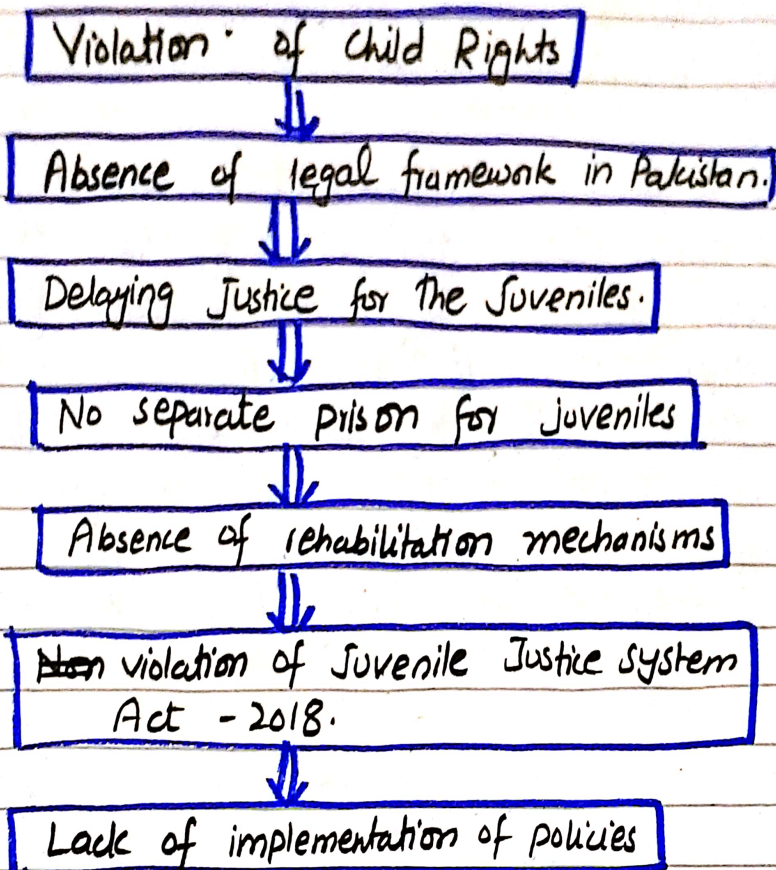 Violation of Child Rights
Absence of legal framework in Pakistan.
Delaying Justice for the Juveniles.
No separate prison for juveniles
Absence of rehabilitation mechanisms
violation of Juvenile Justice System
Act - 2018.
Lack of implementation of policies